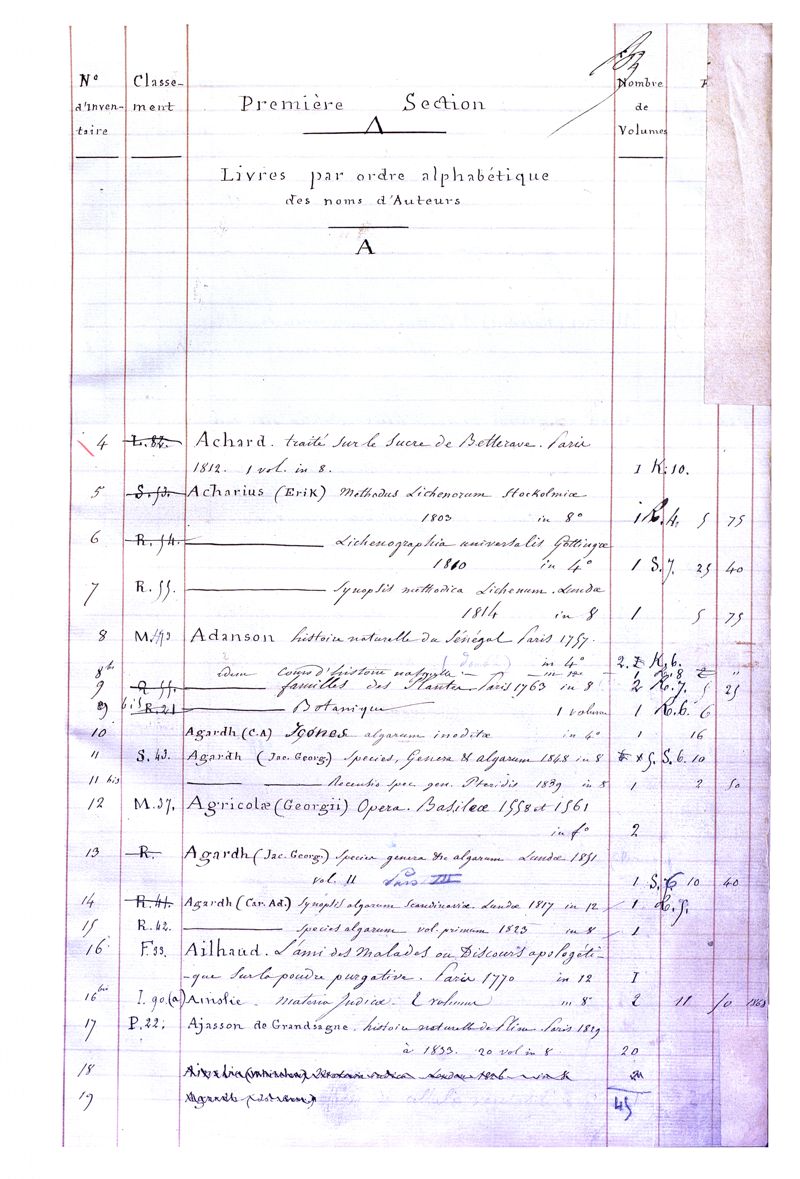 N° d'Inventaire
Classement
Première Section
A
Nombre de Volumes
Livres par ordre alphabétique
des noms d'Auteurs
A
4 L. 82. Achard. traité sur le Sucre de Betterave. Paris
1812. 1 vol. in 8. 1 K. 10.
5 S. 53. Acharius (Erik) Methodus Lichenum Stockolmiæ
1803 in 8° 1 R. 4. 5 75
6 R. 54. Lichenographia universalis Gottingæ
1810 in 4° 1 S. 7. 25 40
7 R. 55. Synopsis methodica Lichenum. Lundæ
1814 in 8 1 5 75
8 M. 193 Adanson histoire naturelle du Sénégal Paris 1757.
in 4° 2. K. 6.
8 bis idem cours d'histoire naturelle in 12 1 K. 8
9 Q. 55. familles des Plantes Paris 1763 in 8 2 K. 7. 5 25
9 bis R. 21 Botanique 1 volume 1 K. 6. 6
10 Agardh (C.A) Icones algarum ineditæ in 4° 1 16
11 S. 43. Agardh (Jac. Georg.) Species, Genera & algarum 1848 in 8 5. S. 6. 10
11 bis Recentis spec. gen. Pteridis 1839 in 8 1 2 50
12 M. 37. Agricolæ (Georgii) Opera. Basileæ 1558 et 1561
in f° 2
13 R. Agardh (Jac. Georg.) Species genera &c algarum Lundæ 1851
vol. II Pars III 1 S. 6 10 40
14 R. 41. Agardh (Car. Ad.) Synopsis algarum scandinaviæ Lundæ 1817 in 12 1 R. 5.
15 R. 42. species algarum vol. primum 1823 in 8 1
16 F. 33. Ailhaud. L'ami des Malades ou Discours apologéti-
-que sur la poudre purgative. Paris 1770 in 12 1
16 bis I. 90. (a) Ainslie. Materia Indica. 2 volumes in 8° 2 11 50 1863
17 P. 22. Ajasson de Grandsagne. histoire naturelle de Pline. Paris 1829
à 1833. 20 vol in 8. 20
18
19 Agardh
45